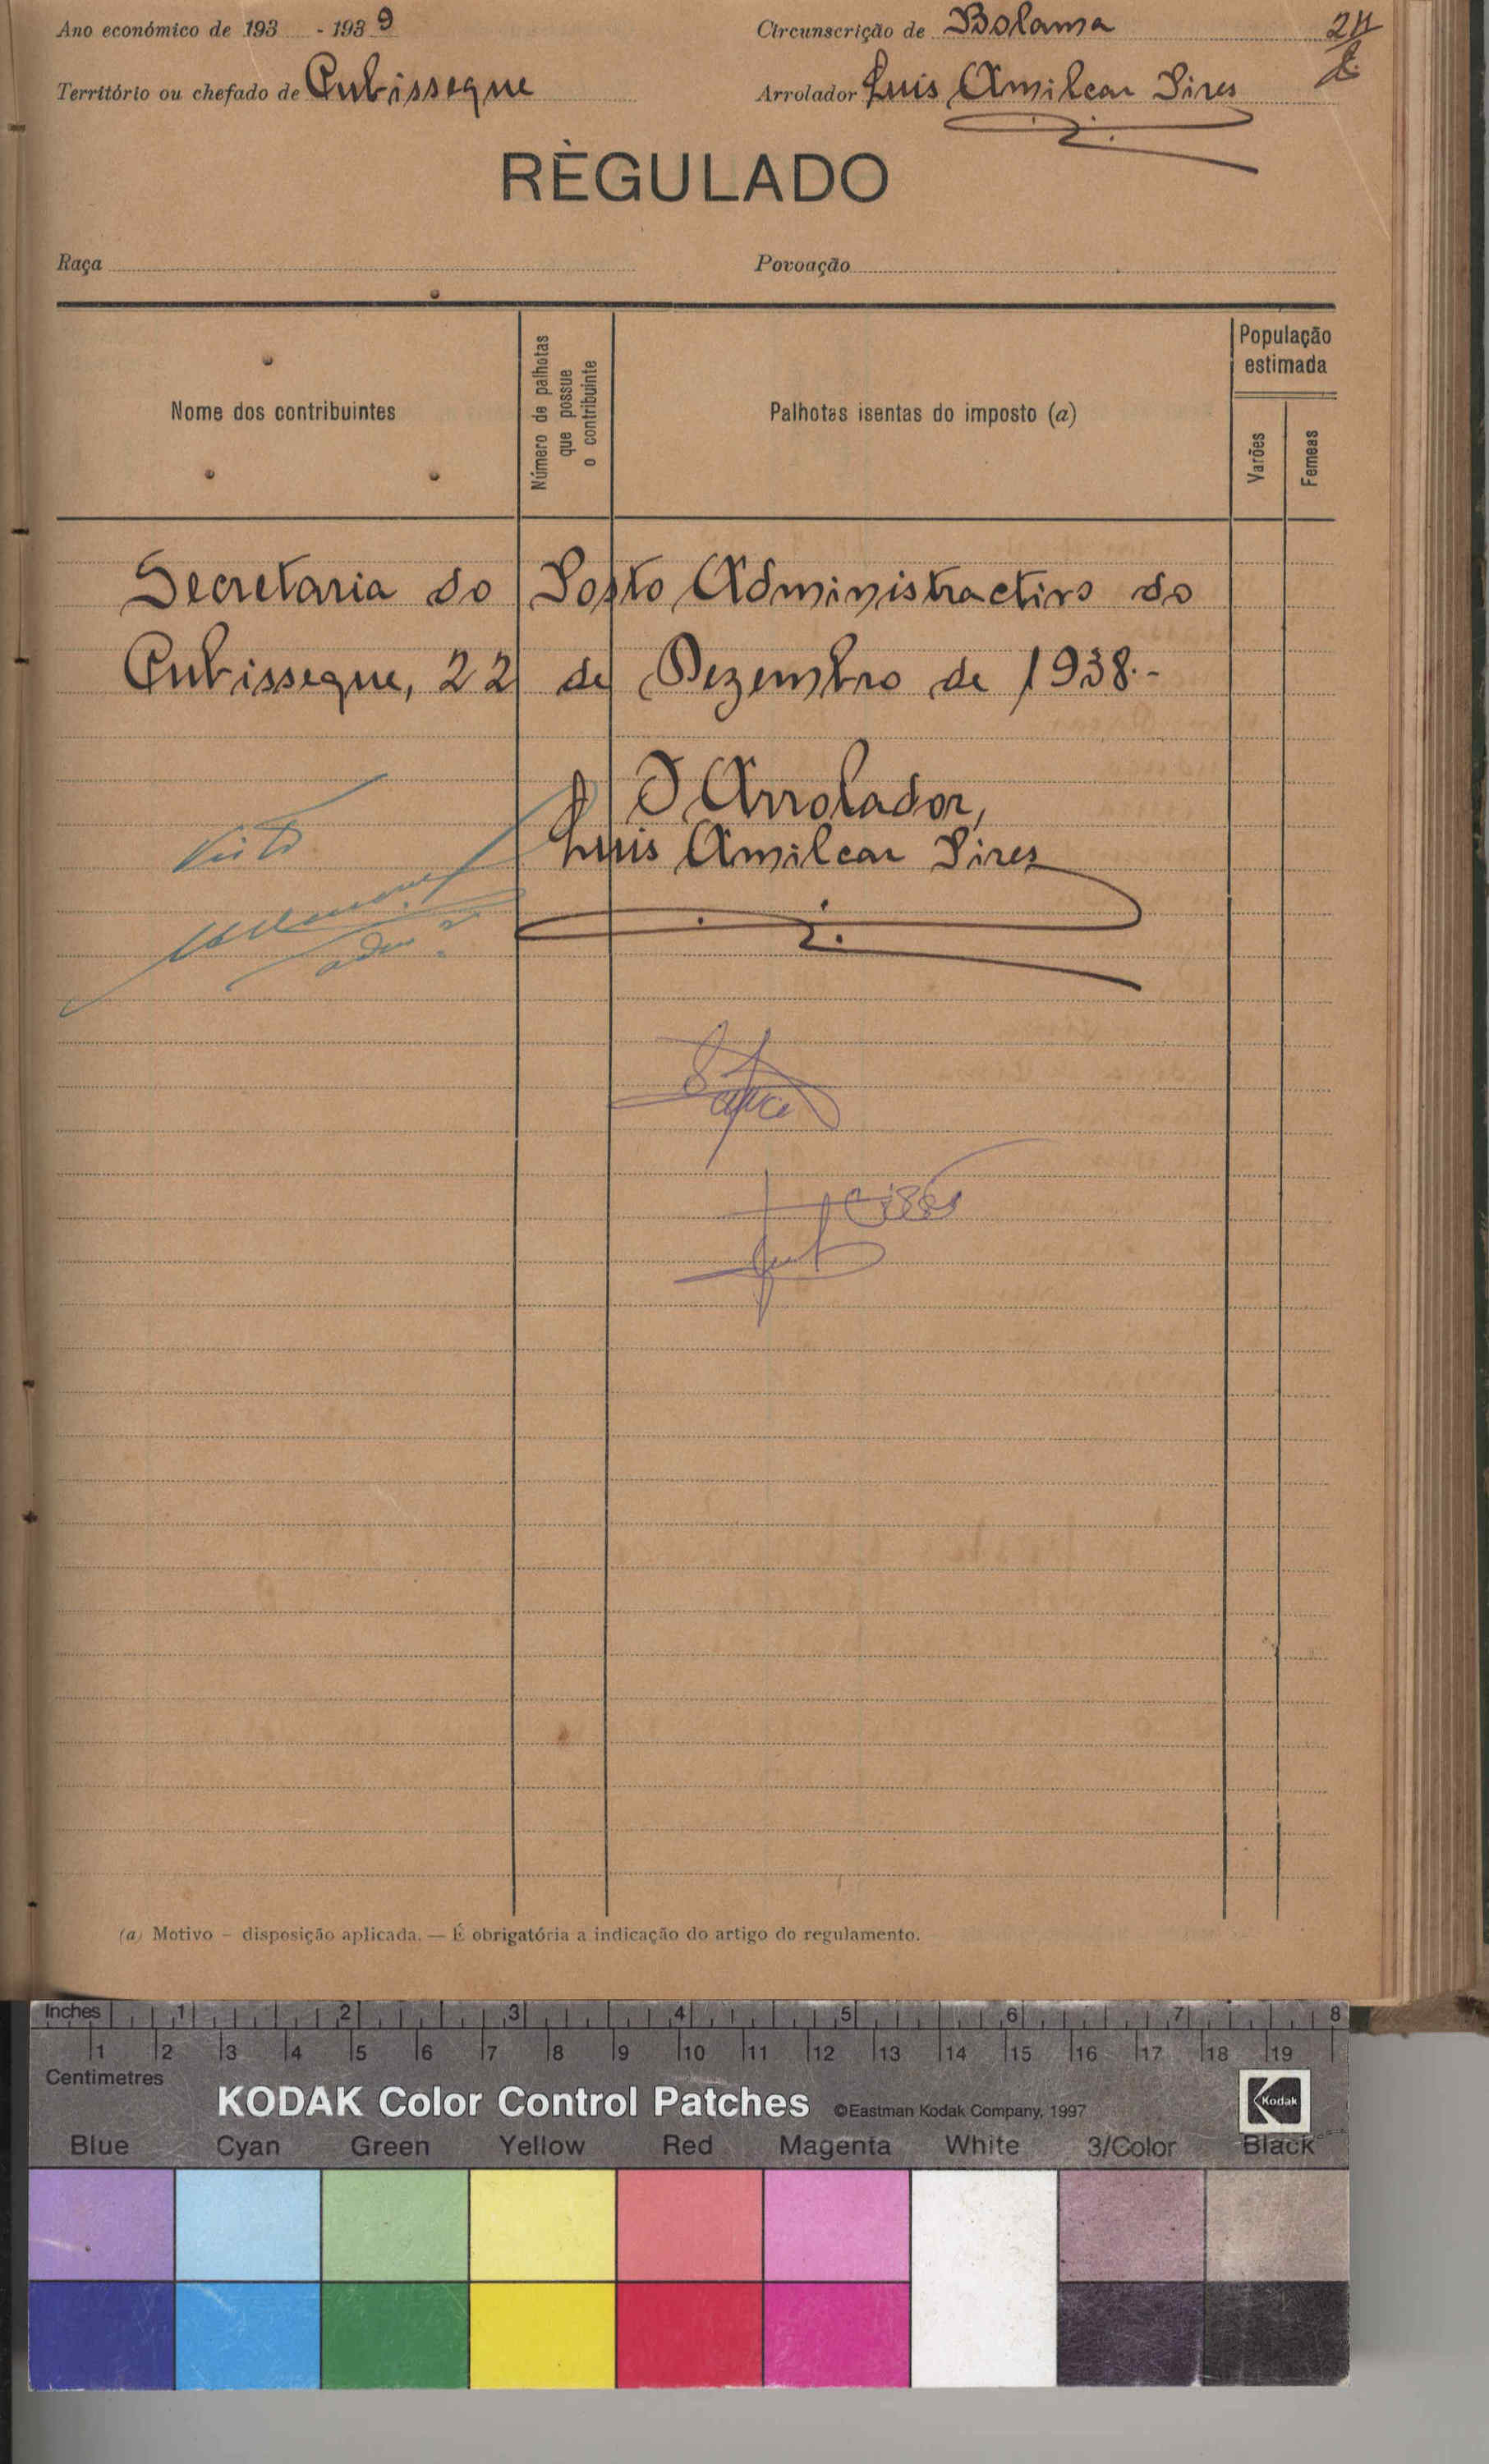 Ano económico de 193 - 1939
Circunscrição de Bolama
Território ou chefado de Cubisseque
Arrolador Luis Amilcar Pires
RÈGULADO
Raça
Povoação
Nome dos contribuintes
Número de palhotas
que possue
o contribuinte
Palhotas isentas do imposto (a)
População
estimada
Varões
Femeas
Secretaria do Posto Administractivo do
Cubisseque, 22 de Dezembro de 1938.-
O Arrolador,
Luis Amilcar Pires
Visto
(a) Motivo - disposição aplicada. — É obrigatória a indicação do artigo do regulamento.
Inches 1 2 3 4 5 6 7 8
1 2 3 4 5 6 7 8 9 10 11 12 13 14 15 16 17 18 19
Centimetres
KODAK Color Control Patches ©Eastman Kodak Company, 1997
Kodak
Blue Cyan Green Yellow Red Magenta White 3/Color Black